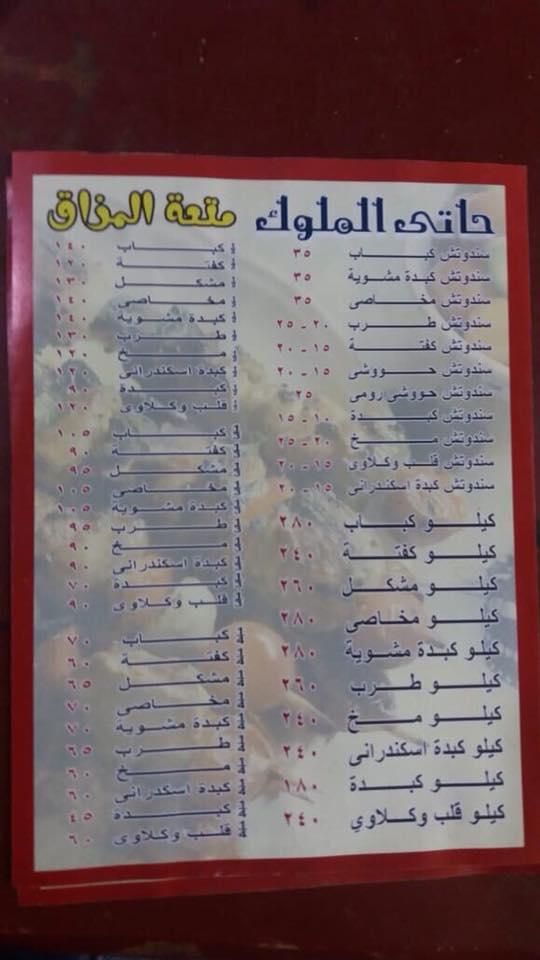 حاتى الملوك
سندوتش كباب ٣٥
سندوتش كبدة مشوية ٣٥
سندوتش مخاصى ٣٥
سندوتش طرب ٢٠ - ٢٥
سندوتش كفتة ١٥ - ٢٠
سندوتش حووشى ١٥ - ٢٠
سندوتش حووشى رومى ٢٥
سندوتش كبدة ١٠ - ١٥
سندوتش مخ ٢٠ - ٢٥
سندوتش قلب وكلاوى ١٥ - ٢٠
سندوتش كبدة اسكندرانى ١٥ - ٢٠
كيلو كباب ٢٨٠
كيلو كفتة ٢٤٠
كيلو مشكل ٢٦٠
كيلو مخاصى ٢٨٠
كيلو كبدة مشوية ٢٨٠
كيلو طرب ٢٦٠
كيلو مخ ٢٤٠
كيلو كبدة اسكندرانى ٢٤٠
كيلو كبدة ١٨٠
كيلو قلب وكلاوي ٢٤٠
متعة المزاق
كباب ١٤٠
كفتة ١٢٠
مشكل ١٣٠
مخاصى ١٤٠
كبدة مشوية ١٤٠
طرب ١٣٠
مخ ١٢٠
كبدة اسكندرانى ١٢٠
كبدة ٩٠
قلب وكلاوى ١٢٠
كباب ١٠٥
كفتة ٩٠
مشكل ٩٥
مخاصى ١٠٥
كبدة مشوية ١٠٥
طرب ٩٥
مخ ٩٠
كبدة اسكندرانى ٩٠
كبدة ٧٠
قلب وكلاوى ٩٠
كباب ٧٠
كفتة ٦٠
مشكل ٦٥
مخاصى ٧٠
كبدة مشوية ٧٠
طرب ٦٥
مخ ٦٠
كبدة اسكندرانى ٦٠
كبدة ٤٥
قلب وكلاوى ٦٠